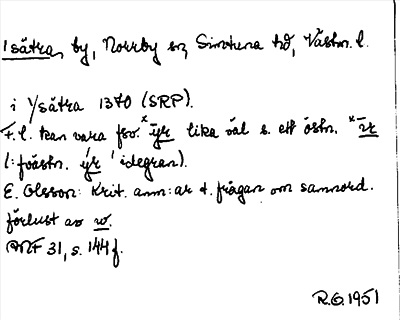 Isätra, by, Norrby sn, Simtuna hd, Västm. l.
i Ysätra 1370 (SRP).
F. l. kan vara fsv. *ȳr lika väl s. ett östn. *īr
(: fvästn. ýr 'idegran).
E. Olsson: Krit. anm:ar t. frågan om samnord.
förlust av w.
ANF 31, s. 144 f.
R.O. 1951